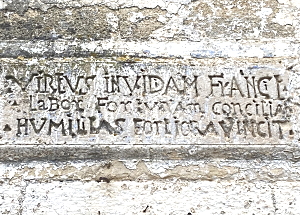 VIRTUS INVIDAM FRANGI
LaBOR FORTUNAM CONCILIA
·HUMILITAS FORTIORA VINCIT·